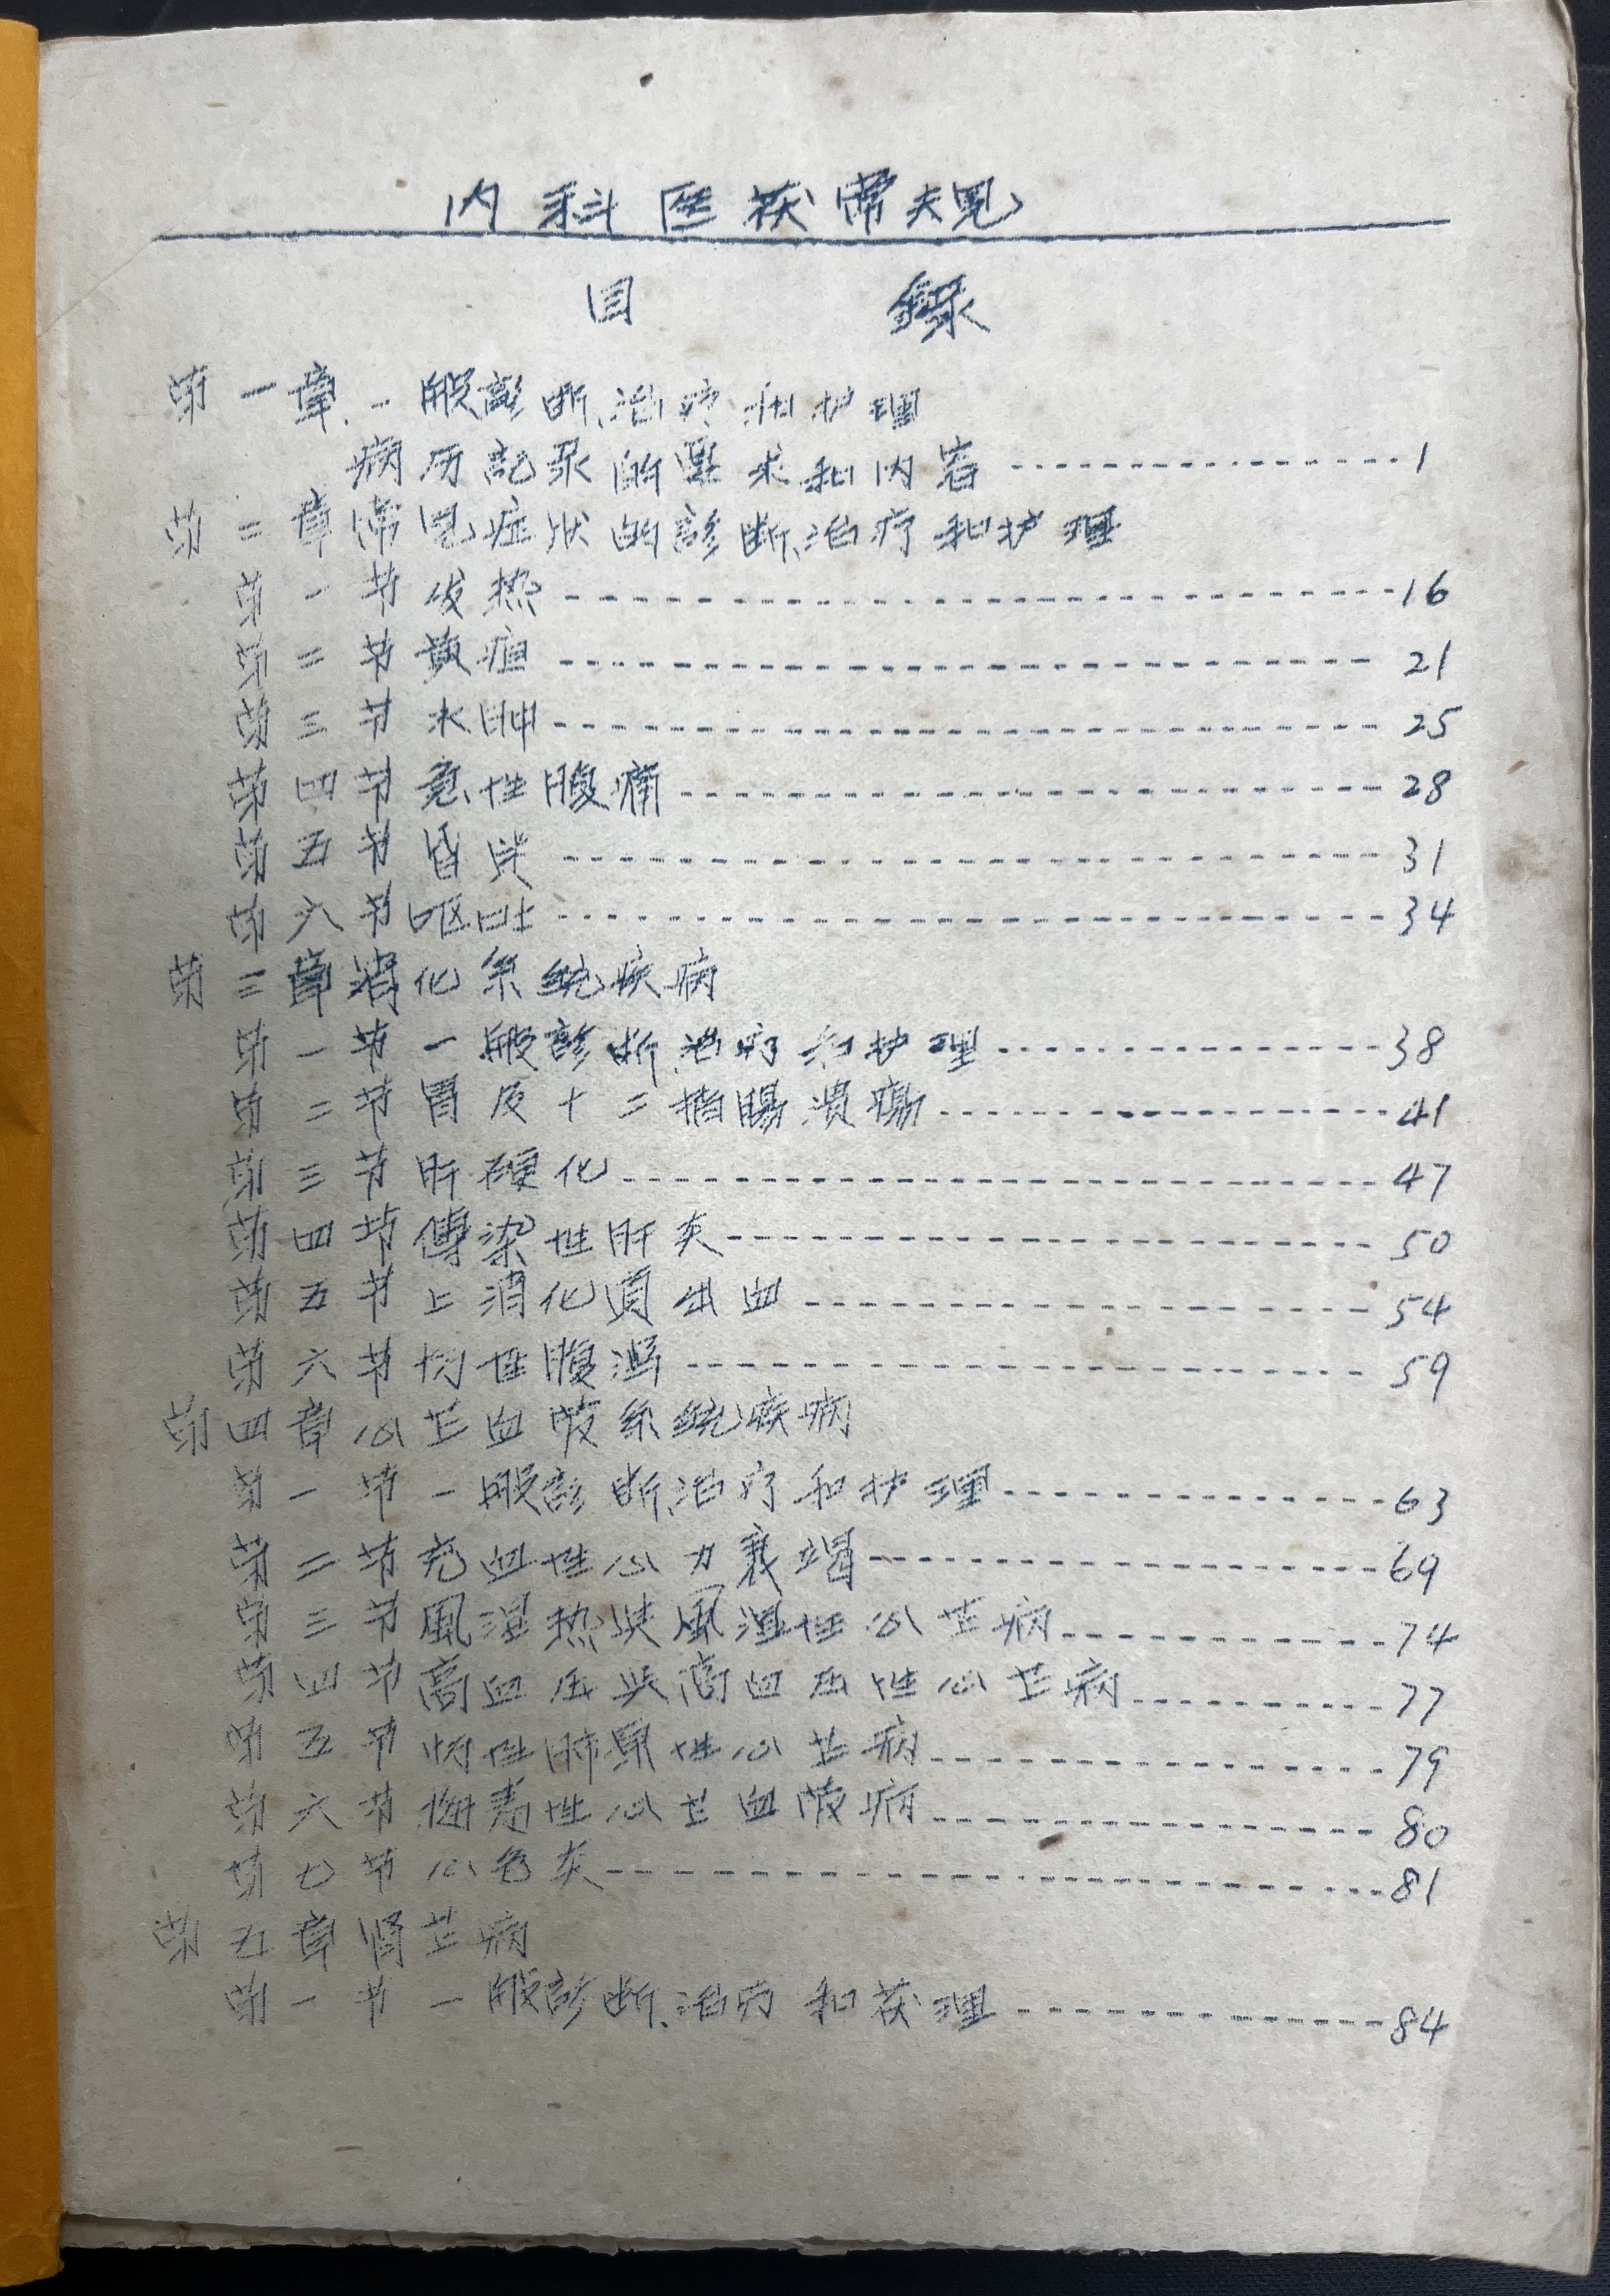 内科医疗常規
目 錄
第一章 一般診断、治疗和护理
病历記录的要求和内容 ---------- 1
第二章 常見症状的診断、治疗和护理
第一节 发热 ---------- 16
第二节 黄疸 ---------- 21
第三节 水肿 ---------- 25
第四节 急性腹痛 ---------- 28
第五节 昏迷 ---------- 31
第六节 呕吐 ---------- 34
第三章 消化系統疾病
第一节 一般診断、治疗和护理 ---------- 38
第二节 胃及十二指腸潰瘍 ---------- 41
第三节 肝硬化 ---------- 47
第四节 傳染性肝炎 ---------- 50
第五节 上消化道出血 ---------- 54
第六节 慢性腹瀉 ---------- 59
第四章 心芷血管系統疾病
第一节 一般診断、治疗和护理 ---------- 63
第二节 充血性心力衰竭 ---------- 69
第三节 風湿热与風湿性心芷病 ---------- 74
第四节 高血压与高血压性心芷病 ---------- 77
第五节 慢性肺原性心芷病 ---------- 79
第六节 梅毒性心芷血管病 ---------- 80
第七节 心包炎 ---------- 81
第五章 肾芷病
第一节 一般診断、治疗和护理 ---------- 84